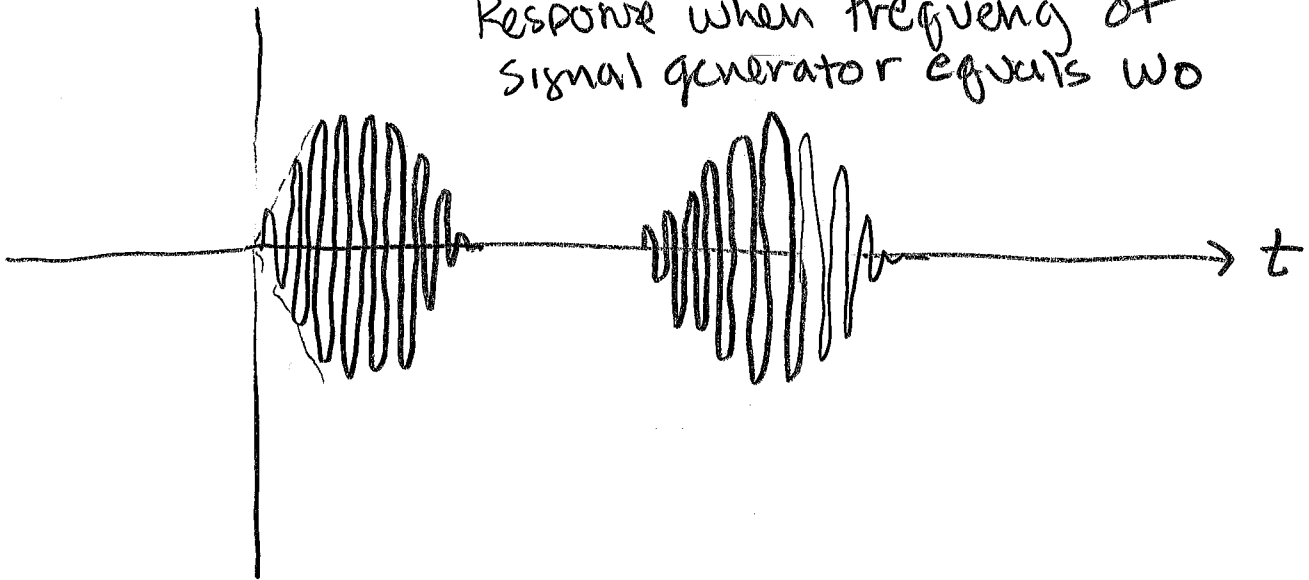 Response when frequency of
signal generator equals wo
t